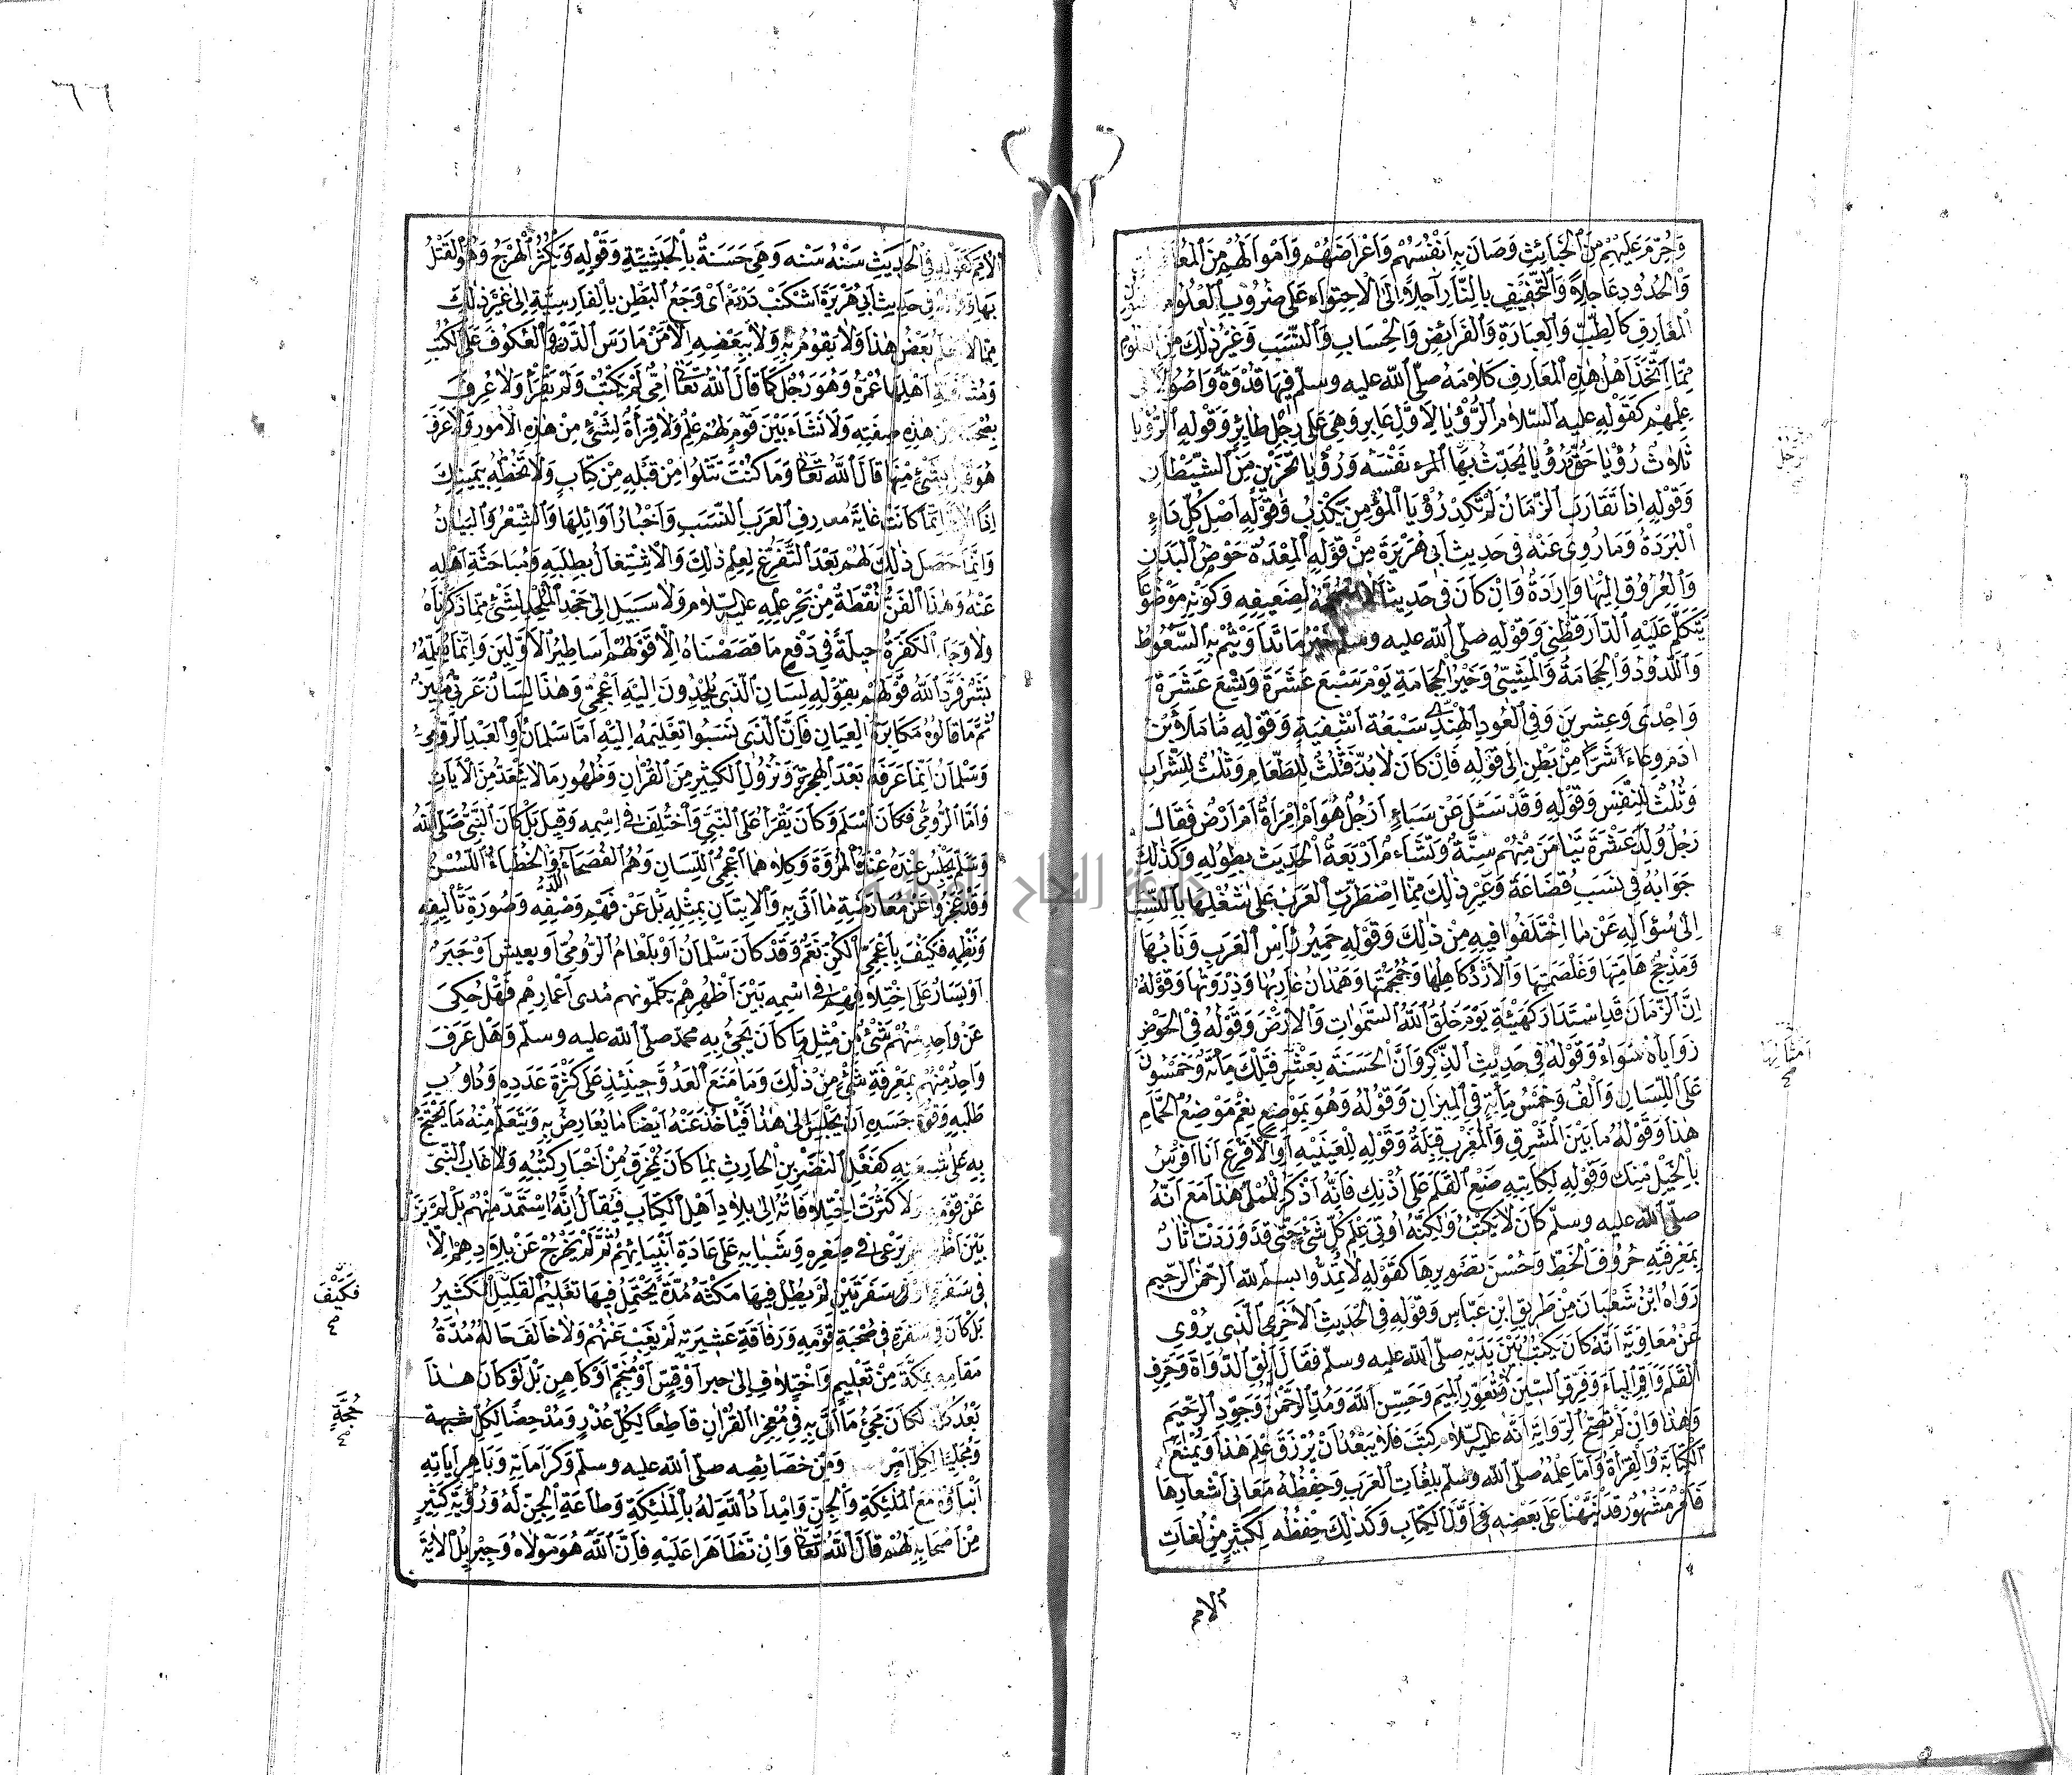 وَحُرِّمَ عَلَيْهِمْ مِنَ الْخَبَائِثِ وَصَانَ بِهِ اَنْفُسَهُمْ وَاَعْرَاضَهُمْ وَاَمْوَالَهُمْ مِنَ
وَالْحُدُودِ عَاجِلاً وَالتَّخْفِيفِ بِالنَّارِ آجِلاً اِلَى الْاِحْتِوَاءِ عَلَى ضُرُوبِ الْعُلُومِ
الْمَعَارِفِ كَالطِّبِّ وَالْعِبَارَةِ وَالْفَرَائِضِ وَالْحِسَابِ وَالنَّسَبِ وَغَيْرِ ذٰلِكَ مِنَ الْعُلُومِ
مِمَّا اتَّخَذَ اَهْلُ هٰذِهِ الْمَعَارِفِ كَلَامَهُ صلّى الله عليه وسلّم فِيهَا قُدْوَةً وَاُصُولاً فِى
عِلْمِهِمْ كَقَوْلِهِ عليه السّلام الرُّؤْيَا لِاَوَّلِ عَابِرٍ وَهِىَ عَلَى رِجْلِ طَائِرٍ وَقَوْلِهِ الرُّؤْيَا
ثَلَاثٌ رُؤْيَا حَقٌّ وَرُؤْيَا يُحَدِّثُ بِهَا الْمَرْءُ نَفْسَهُ وَرُؤْيَا تَحْزِينٍ مِنَ الشَّيْطَانِ
وَقَوْلِهِ اِذَا تَقَارَبَ الزَّمَانُ لَمْ تَكَدْ رُؤْيَا الْمُؤْمِنِ تَكْذِبُ وَقَوْلِهِ اَصْلُ كُلِّ دَاءٍ
الْبَرَدَةُ وَمَا رُوِىَ عَنْهُ فِى حَدِيثِ اَبِى هُرَيْرَةَ مِنْ قَوْلِهِ الْمَعِدَةُ حَوْضُ الْبَدَنِ
وَالْعُرُوقُ اِلَيْهَا وَارِدَةٌ وَاِنْ كَانَ فِى حَدِيثاً لَا نُصَحِّحُهُ لِضَعْفِهِ وَكَوْنِهِ مَوْضُوعًا
يَتَكَلَّمُ عَلَيْهِ الدَّارَقُطْنِىُّ وَقَوْلِهِ صلّى الله عليه وسلّم خَيْرُ مَا تَدَاوَيْتُمْ بِهِ السَّعُوطُ
وَاللَّدُودُ وَالْحِجَامَةُ وَالْمَشِىُّ وَخَيْرُ الْحِجَامَةِ يَوْمَ سَبْعَ عَشَرَةَ وَتِسْعَ عَشَرَةَ
وَاِحْدَى وَعِشْرِينَ وَفِى الْعُودِ الْهِنْدِىِّ سَبْعَةُ اَشْفِيَةٍ وَقَوْلِهِ مَا مَلَأَ ابْنُ
آدَمَ وِعَاءً شَرًّا مِنْ بَطْنٍ اِلَى قَوْلِهِ فَاِنْ كَانَ لَا بُدَّ فَثُلُثٌ لِلطَّعَامِ وَثُلُثٌ لِلشَّرَابِ
وَثُلُثٌ لِلنَّفَسِ وَقَوْلِهِ وَقَدْ سُئِلَ عَنْ سَبَاءٍ اَرَجُلٌ هُوَ اَمْ اِمْرَأَةٌ اَمْ اَرْضٌ فَقَالَ
رَجُلٌ وُلِدَ عَشَرَةً تَيَامَنَ مِنْهُمْ سِتَّةٌ وَتَشَاءَمَ اَرْبَعَةٌ الْحَدِيثَ بِطُولِهِ وَكَذٰلِكَ
جَوَابُهُ فِى نَسَبِ قُضَاعَةَ وَغَيْرِ ذٰلِكَ مِمَّا اضْطَرَّتِ الْعَرَبُ عَلَى شُغْلِهَا بِالنَّسَبِ
اِلَى سُؤَالِهِ عَنْ مَا اخْتَلَفُوا فِيهِ مِنْ ذٰلِكَ وَقَوْلِهِ حِمْيَرُ رَأْسُ الْعَرَبِ وَنَابُهَا
وَمَذْحِجُ هَامَتُهَا وَغَلْصَمَتُهَا وَالْاَزْدُ كَاهِلُهَا وَجُمْجُمَتُهَا وَهَمْدَانُ غَارِبُهَا وَذِرْوَتُهَا وَقَوْلُهُ
اِنَّ الزَّمَانَ قَدِ اسْتَدَارَ كَهَيْئَةِ يَوْمَ خَلَقَ اللهُ السَّمٰوَاتِ وَالْاَرْضَ وَقَوْلُهُ فِى الْحَوْضِ
زَوَايَاهُ سَوَاءٌ وَقَوْلُهُ فِى حَدِيثِ الذِّكْرِ وَاَنَّ الْحَسَنَةَ بِعَشْرٍ فَتِلْكَ مِائَةٌ وَخَمْسُونَ
عَلَى اللِّسَانِ وَاَلْفٌ وَخَمْسُ مِائَةٍ فِى الْمِيزَانِ وَقَوْلُهُ وَهُوَ بِمَوْضِعٍ نِعْمَ مَوْضِعُ الْحَمَّامِ
هٰذَا وَقَوْلُهُ مَا بَيْنَ الْمَشْرِقِ وَالْمَغْرِبِ قِبْلَةٌ وَقَوْلِهِ لِلْعُيَيْنَةِ اَوِ الْاَقْرَعِ اَنَا اَفْرَسُ
بِالْخَيْلِ مِنْكَ وَقَوْلِهِ لِكَاتِبِهِ ضَعِ الْقَلَمَ عَلَى اُذُنِكَ فَاِنَّهُ اَذْكَرُ لِلْمُمْلِى هٰذَا مَعَ اَنَّهُ
صلّى الله عليه وسلّم كَانَ لَا يَكْتُبُ وَلٰكِنَّهُ اُوتِىَ عِلْمَ كُلِّ شَىْءٍ حَتَّى قَدْ وَرَدَتْ آثَارٌ
بِمَعْرِفَتِهِ حُرُوفَ الْخَطِّ وَحُسْنَ تَصْوِيرِهَا كَقَوْلِهِ لَا تَمُدُّوا بسم الله الرّحمن الرّحيم
رَوَاهُ ابْنُ شَعْبَانَ مِنْ طَرِيقِ ابْنِ عَبَّاسٍ وَقَوْلِهِ فِى الْحَدِيثِ الْآخَرِ الَّذِى يُرْوَى
عَنْ مُعَاوِيَةَ اَنَّهُ كَانَ يَكْتُبُ بَيْنَ يَدَيْهِ صلّى الله عليه وسلّم فَقَالَ اَلِقِ الدَّوَاةَ وَحَرِّفِ
الْقَلَمَ وَاَقِمِ الْبَاءَ وَفَرِّقِ السِّينَ وَلَا تُعَوِّرِ الْمِيمَ وَحَسِّنِ اللهَ وَمُدَّ الرَّحْمٰنَ وَجَوِّدِ الرَّحِيمَ
وَهٰذَا وَاِنْ لَمْ تَصِحَّ الرِّوَايَةُ اَنَّهُ عليه السّلام كَتَبَ فَلَا يَبْعُدُ اَنْ يُرْزَقَ عِلْمَ هٰذَا وَيُمْنَعَ
الْكِتَابَةَ وَالْقِرَاءَةَ وَاَمَّا عِلْمُهُ صلّى الله وسلّم بِلُغَاتِ الْعَرَبِ وَحِفْظُهُ مَعَانِىَ اَشْعَارِهَا
فَاَمْرٌ مَشْهُورٌ قَدْ نَبَّهْنَا عَلَى بَعْضِهِ فِى اَوَّلِ الْكِتَابِ وَكَذٰلِكَ حِفْظُهُ لِكَثِيرٍ مِنْ لُغَاتِ
الامم
٦٦
الْاُمَمِ كَقَوْلِهِ فِى الْحَدِيثِ سَنَهْ سَنَهْ وَهِىَ حَسَنَةٌ بِالْحَبَشِيَّةِ وَقَوْلِهِ وَيَكْثُرُ الْهَرْجُ وَهُوَ الْقَتْلُ
بِهَا وَقَوْلِهِ فِى حَدِيثِ اَبِى هُرَيْرَةَ اَشْكَنْبْ دَرَدْمْ اَىْ وَجَعُ الْبَطْنِ بِالْفَارِسِيَّةِ اِلَى غَيْرِ ذٰلِكَ
مِمَّا لَا يَعْلَمُ بَعْضَ هٰذَا وَلَا يَقُومُ بِهِ وَلَا بِبَعْضِهِ اِلَّا مَنْ مَارَسَ الدَّرْسَ وَالْعُكُوفَ عَلَى الْكُتُبِ
وَمُثَافَنَةِ اَهْلِهَا عُمْرَهُ وَهُوَ رَجُلٌ كَمَا قَالَ اللهُ تَعَالَى اُمِّىٌّ لَمْ يَكْتُبْ وَلَمْ يَقْرَأْ وَلَا عُرِفَ
بِصُحْبَةِ مَنْ هٰذِهِ صِفَتُهِ وَلَا نَشَاءَ بَيْنَ قَوْمٍ لَهُمْ عِلْمٌ وَلَا قِرَاءَةٌ لِشَىْءٍ مِنْ هٰذِهِ الْاُمُورِ وَلَا عُرِفَ
هُوَ قَبْلُ بِشَىْءٍ مِنْهَا قَالَ اللهُ تَعَالَى وَمَا كُنْتَ تَتْلُوا مِنْ قَبْلِهِ مِنْ كِتَابٍ وَلَا تَخُطُّهُ بِيَمِينِكَ
اِذًا الْآيَةَ اِنَّمَا كَانَتْ غَايَةُ مَعَارِفِ الْعَرَبِ النَّسَبَ وَاَخْبَارَ اَوَائِلِهَا وَالشِّعْرَ وَالْبَيَانَ
وَاِنَّمَا حَصَلَ ذٰلِكَ لَهُمْ بَعْدَ التَّفَرُّغِ لِعِلْمِ ذٰلِكَ وَالْاِشْتِغَالِ بِطَلَبِهِ وَمُبَاحَثَةِ اَهْلِهِ
عَنْهُ وَهٰذَا الْفَنُّ نُقْطَةٌ مِنْ بَحْرِ عِلْمِهِ عليه السّلام وَلَا سَبِيلَ اِلَى جَحْدِ الْمُلْحِدِ لِشَىْءٍ مِمَّا ذَكَرْنَاهُ
وَلَا وَجَدَ الْكَفَرَةُ حِيلَةً فِى دَفْعِ مَا قَصَصْنَاهُ اِلَّا قَوْلَهُمْ اَسَاطِيرُ الْاَوَّلِينَ وَاِنَّمَا يُعَلِّمُهُ
بَشَرٌ فَرَدَّ اللهُ قَوْلَهُمْ بِقَوْلِهِ لِسَانُ الَّذِى يُلْحِدُونَ اِلَيْهِ اَعْجَمِىٌّ وَهٰذَا لِسَانٌ عَرَبِىٌّ مُبِينٌ
ثُمَّ مَا قَالُوهُ مُكَابَرَةُ الْعِيَانِ فَاِنَّ الَّذِى نَسَبُوا تَعْلِيمَهُ اِلَيْهِ اِمَّا سَلْمَانُ اَوِ الْعَبْدُ الرُّومِىُّ
وَسَلْمَانُ اِنَّمَا عَرَفَهُ بَعْدَ الْهِجْرَةِ وَنُزُولِ الْكَثِيرِ مِنَ الْقُرْاٰنِ وَظُهُورِ مَا لَا يَنْعَدُّ مِنَ الْاٰيَاتِ
وَاَمَّا الرُّومِىُّ فَكَانَ اَسْلَمَ وَكَانَ يَقْرَأُ عَلَى النَّبِىِّ وَاخْتُلِفَ فِى اسْمِهِ وَقِيلَ بَلْ كَانَ النَّبِىُّ صَلَّى اللهُ
وَسَلَّمَ يَجْلِسُ عِنْدَهُ عِنْدَ الْمَرْوَةِ وَكِلَاهُمَا اَعْجَمِىُّ اللِّسَانِ وَهُمُ الْفُصَحَاءُ اللُّدُّ وَالْخُطَبَاءُ اللُّسْنُ
وَقَدْ عَجَزُوا عَنْ مُعَارَضَةِ مَا اَتَى بِهِ وَالْاِتْيَانِ بِمِثْلِهِ بَلْ عَنْ فَهْمِ وَصْفِهِ وَصُورَةِ تَأْلِيفِهِ
وَنَظْمِهِ فَكَيْفَ بِاَعْجَمِىٍّ اَلْكَنَ نَعَمْ وَقَدْ كَانَ سَلْمَانُ اَوْ بَلْعَامُ الرُّومِىُّ اَوْ يَعِيشُ اَوْ جَبَرٌ
اَوْ يَسَارٌ عَلَى اخْتِلَافِهِمْ فِى اسْمِهِ بَيْنَ اَظْهُرِهِمْ يُكَلِّمُونَهُمْ مُدَى اَعْمَارِهِمْ فَهَلْ حُكِىَ
عَنْ وَاحِدٍ مِنْهُمْ شَىْءٌ مِنْ مِثْلِ مَا كَانَ يَجِىءُ بِهِ مُحَمَّدٌ صلّى الله عليه وسلّم وَهَلْ عُرِفَ
وَاحِدٌ مِنْهُمْ بِمَعْرِفَةِ شَىْءٍ مِنْ ذٰلِكَ وَمَا مَنَعَ الْعَدُوَّ حِينَئِذٍ عَلَى كَثْرَةِ عَدَدِهِ وَدُؤُوبِ
طَلَبِهِ وَقُوَّةِ حَسَدِهِ اَنْ يَجْلِسَ اِلَى هٰذَا فَيَأْخُذَ عَنْهُ اَيْضًا مَا يُعَارِضُ بِهِ وَيَتَعَلَّمَ مِنْهُ مَا يَحْتَجُّ
بِهِ عَلَى شِيعَتِهِ كَفِعْلِ النَّضْرِ بْنِ الْحَارِثِ بِمَا كَانَ يُمَخْرِقُ مِنْ اَخْبَارِ كُتُبِهِ وَلَا غَابَ النَّبِىُّ
عَنْ قَوْمِهِ وَلَا كَثُرَتِ اخْتِلَافَاتُهُ اِلَى بِلَادِ اَهْلِ الْكِتَابِ فَيُقَالُ اِنَّهُ اسْتَمَدَّ مِنْهُمْ بَلْ لَمْ يَزَلْ
بَيْنَ اَظْهُرِهِمْ يَرْعَى فِى صِغَرِهِ وَشَبَابِهِ عَلَى عَادَةِ اَنْبِيَائِهِمْ ثُمَّ لَمْ يَخْرُجْ عَنْ بِلَادِهِمْ اِلَّا
فِى سَفْرَةٍ اَوْ سَفْرَتَيْنِ لَمْ يَطُلْ فِيهَا مَكْثُهُ مُدَّةً يَحْتَمِلُ فِيهَا تَعْلِيمُ الْقَلِيلِ الْكَثِيرُ
بَلْ كَانَ فِى سَفْرَةٍ فِى صُحْبَةِ قَوْمِهِ وَرَفَاقَةِ عَشِيرَتِهِ لَمْ يَغِبْ عَنْهُمْ وَلَا خَالَفَ حَالُهُ مُدَّةَ
مَقَامِهِ بِمَكَّةَ مِنْ تَعْلِيمٍ وَاخْتِلَافٍ اِلَى حِبْرٍ اَوْ قِسٍّ اَوْ مُنَجِّمٍ اَوْ كَاهِنٍ بَلْ لَوْ كَانَ هٰذَا
بَعْدُ كُلُّهُ لَكَانَ مَجِىءُ مَا اَتَى بِهِ فِى مُعْجِزِ الْقُرْاٰنِ قَاطِعًا لِكُلِّ عُذْرٍ وَمُدْحِضًا لِكُلِّ شُبْهَةٍ
وَمُجَلِّيًا لِكُلِّ اَمْرٍ وَمِنْ خَصَائِصِهِ صلّى الله عليه وسلّم وَكَرَامَاتِهِ وَبَاهِرِ اٰيَاتِهِ
اَنْبَاؤُهُ مَعَ الْمَلٰئِكَةِ وَالْجِنِّ وَاِمْدَادُ اللهِ لَهُ بِالْمَلٰئِكَةِ وَطَاعَةِ الْجِنِّ لَهُ وَرُؤْيَةِ كَثِيرٍ
مِنْ اَصْحَابِهِ لَهُمْ قَالَ اللهُ تَعَالَى وَاِنْ تَظَاهَرَا عَلَيْهِ فَاِنَّ اللهَ هُوَ مَوْلَاهُ وَجِبْرِيلُ الْاٰيَةَ
فَكَيْفَ
حُجَّةٍ
جامعة النجاح الوطنية